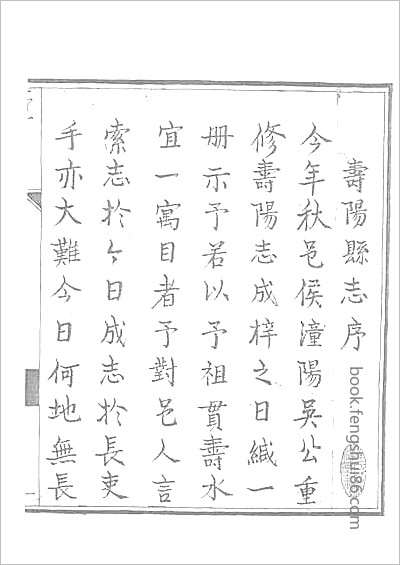 壽陽縣志序
今年秋邑侯潼陽吳公重
修壽陽志成梓之日緘一
册示予若以予祖貫壽水
宜一寓目者予對邑人言
索志於今日成志於長吏
手亦大難今日何地無長
book.fengshui86.com